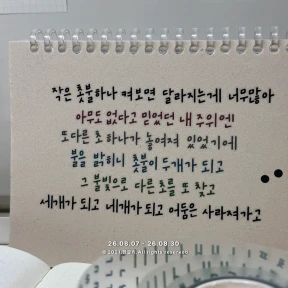 작은 촛불하나 켜보면 달라지는게 너무많아
아무도 없다고 믿었던 내 주위엔
또다른 초 하나가 놓여져 있었기에
불을 밝히니 촛불이 두개가 되고
그 불빛으로 다른초를 또 찾고
세개가 되고 네개가 되고 어둠은 사라져가고
26.08.07 - 26.08.30
All rights reserved